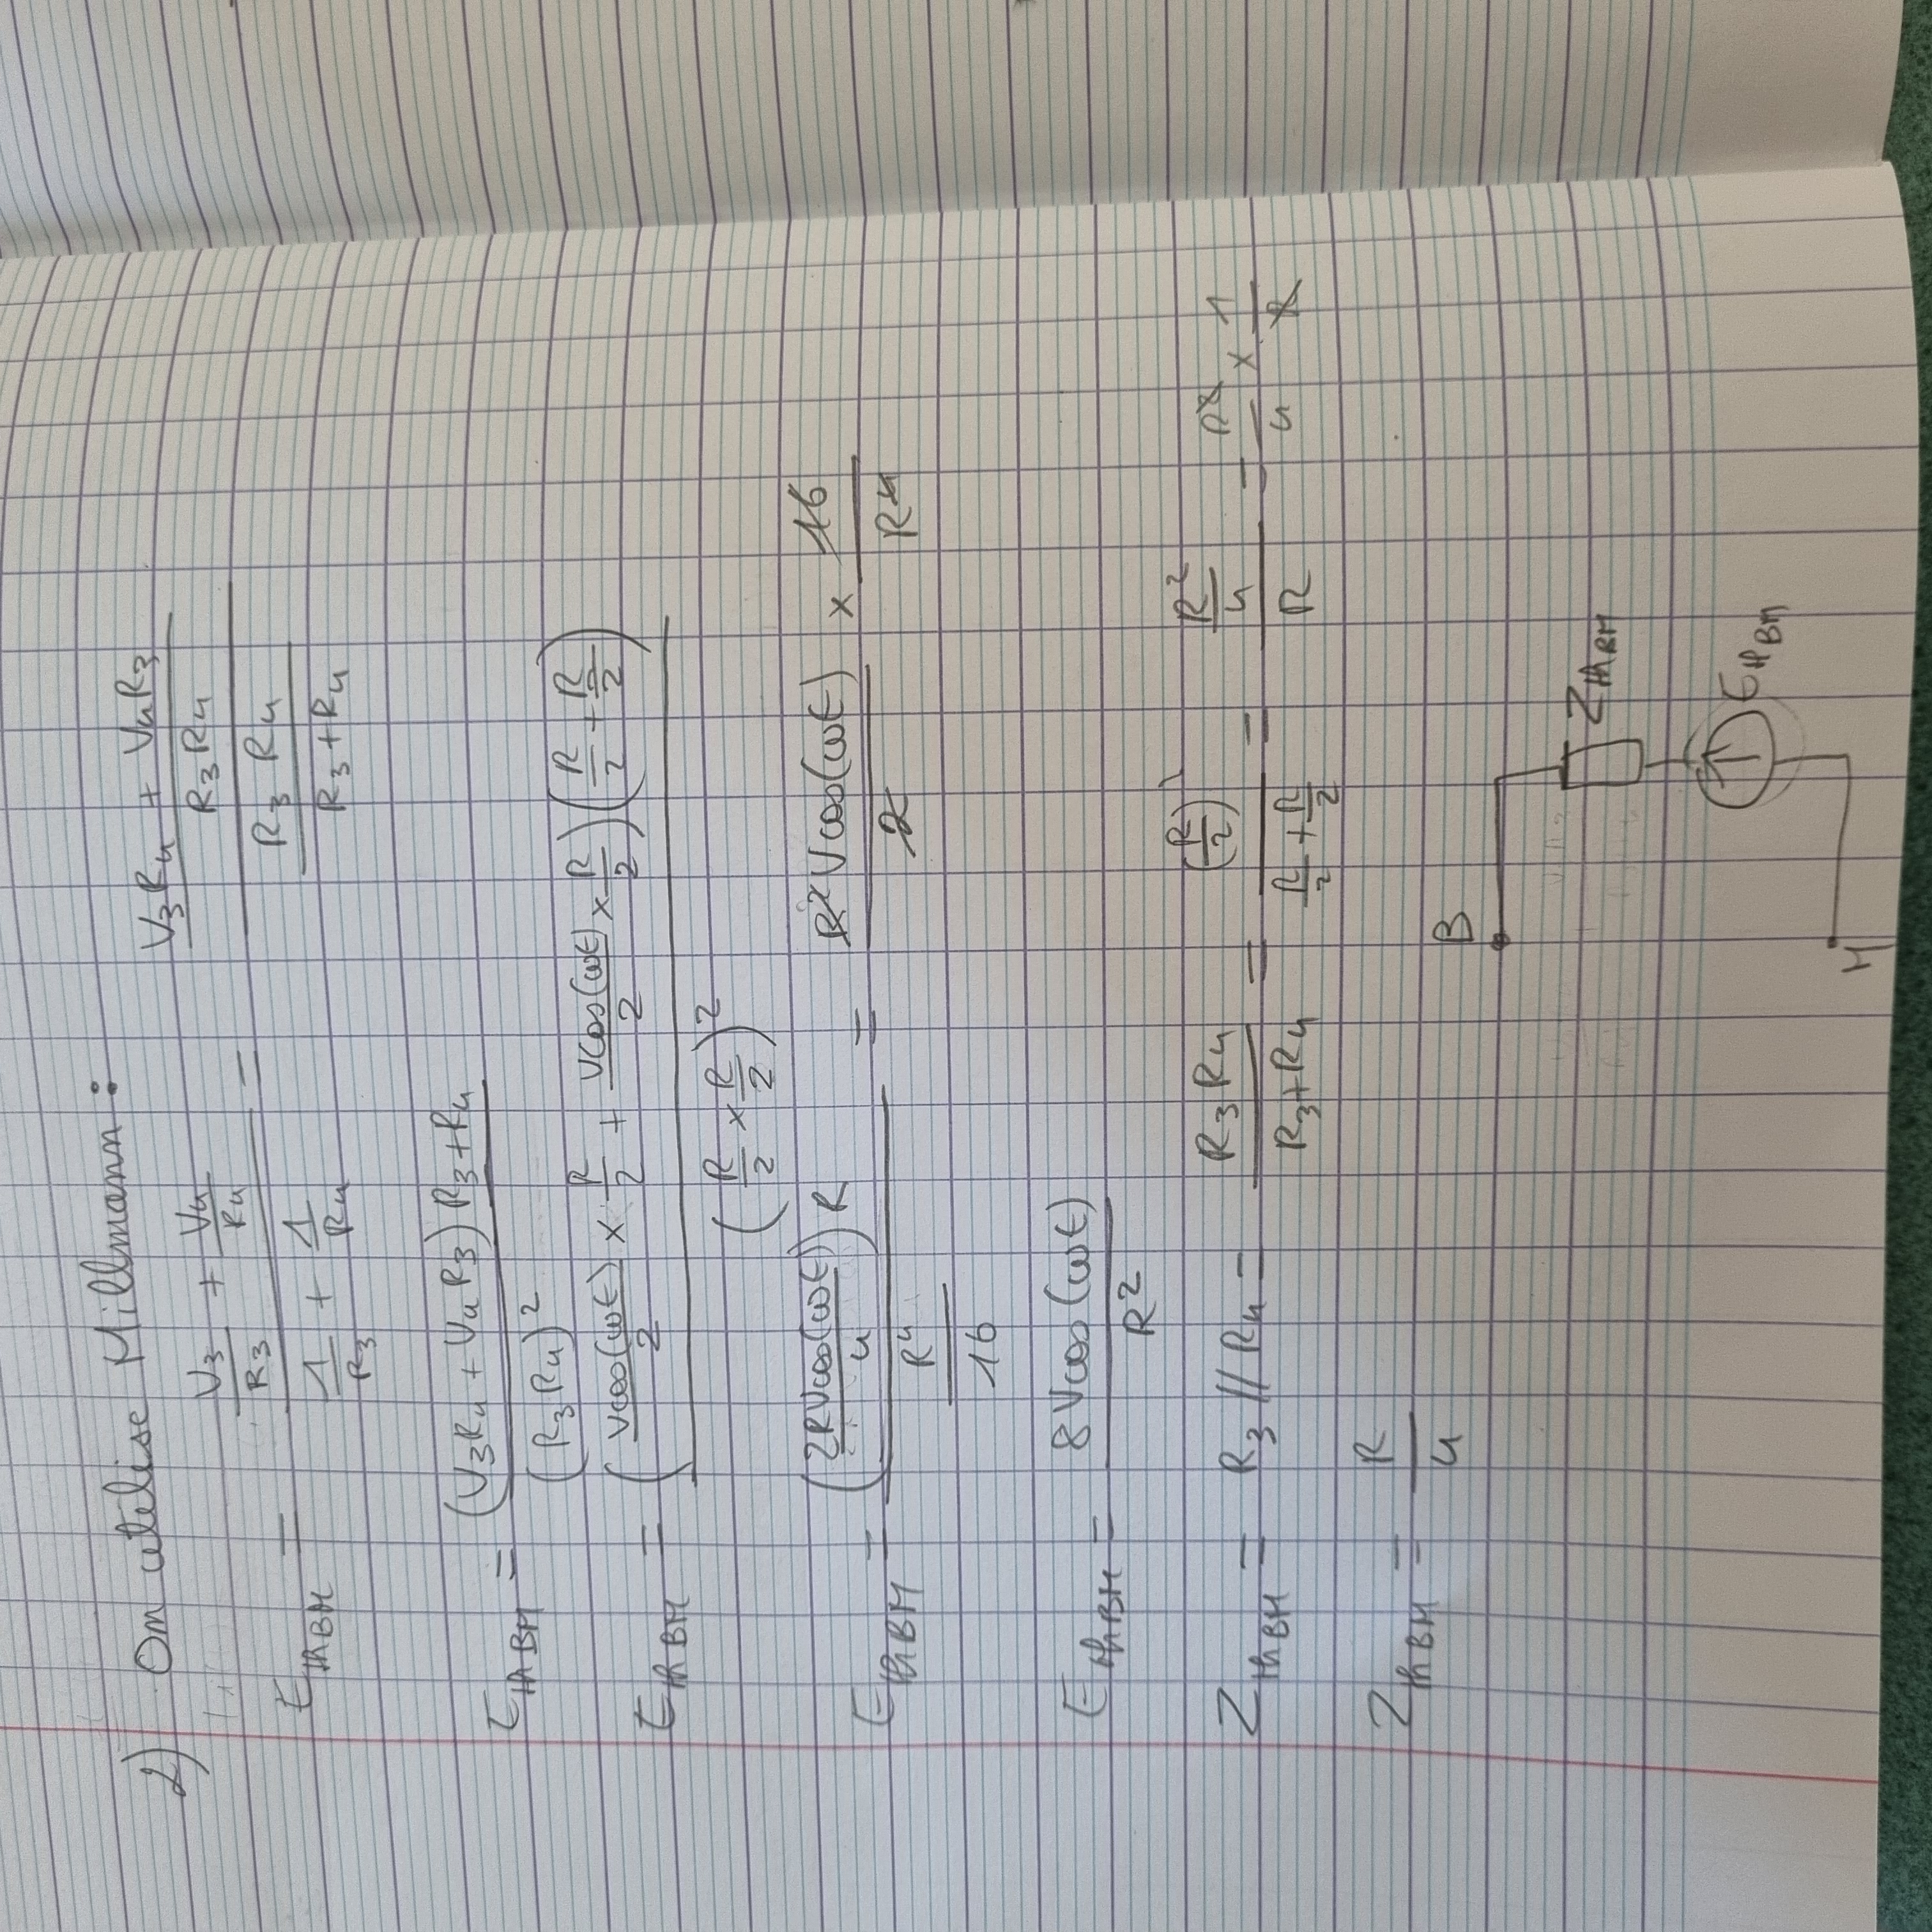 2) On utilise Millmann :
E_thBM = (V_3/R_3 + V_4/R_4) / (1/R_3 + 1/R_4) = ((V_3R_4 + V_4R_3)/(R_3R_4)) / ((R_3R_4)/(R_3+R_4))
E_thBM = ((V_3R_4 + V_4R_3) R_3+R_4) / (R_3R_4)^2
E_thBM = ((Vcos(ωt)/2 × R/2 + Vcos(ωt)/2 × R/2)(R/2 + R/2)) / (R/2 × R/2)^2
E_thBM = ((2RVcos(ωt)/4) R) / (R^4/16) = R^2Vcos(ωt)/2 × 16/R^4
E_thBM = 8Vcos(ωt)/R^2
Z_thBM = R_3//R_4 = R_3R_4/(R_3+R_4) = (R/2)^2/(R/2 + R/2) = (R^2/4)/R = R^2/4 × 1/R
Z_thBM = R/4
B
Z_thBM
E_thBM
M